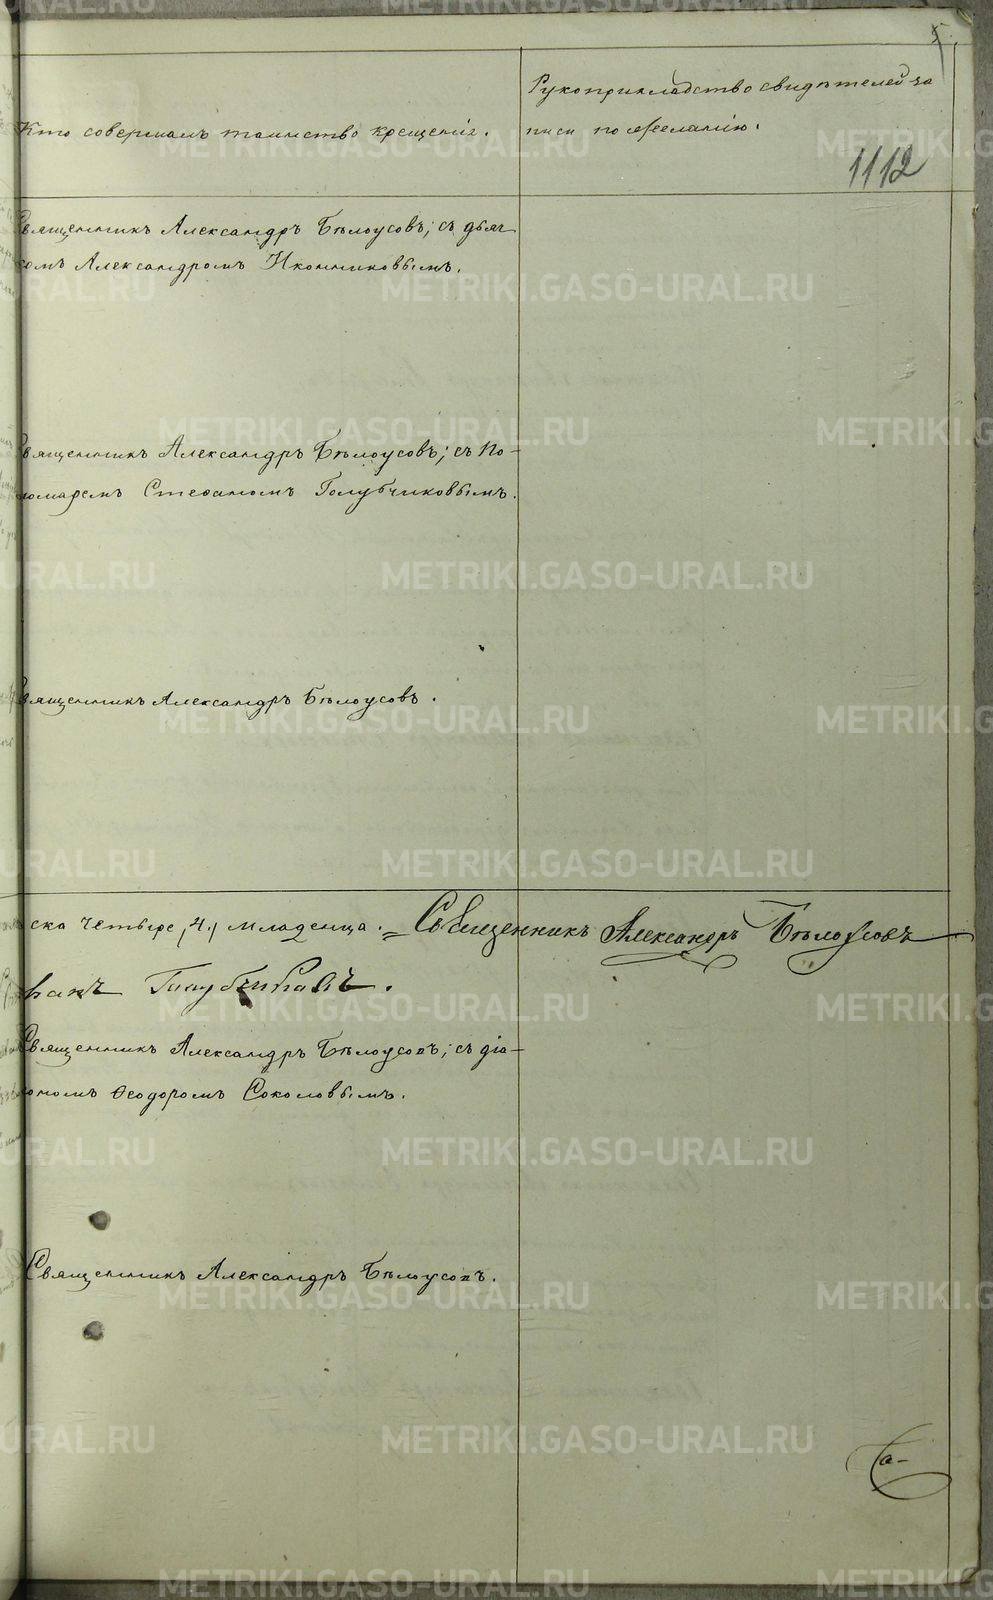 5
Рукоприкладство свидѣтелей за
Кто совершалъ таинство крещенія.
писи по желанію.
1112
Священникъ Александръ Бѣлоусовъ; съ дьяч
комъ Александромъ Иконниковымъ.
Священникъ Александръ Бѣлоусовъ; съ По-
номаремъ Стефаномъ Голубчиковымъ.
Священникъ Александръ Бѣлоусовъ.
ска четыре, 4, младенца. = Священникъ Александръ Бѣлоусовъ
Священникъ Александръ Бѣлоусовъ; съ діа-
кономъ Ѳеодоромъ Соколовымъ.
Священникъ Александръ Бѣлоусовъ.
METRIKI.GASO-URAL.RU